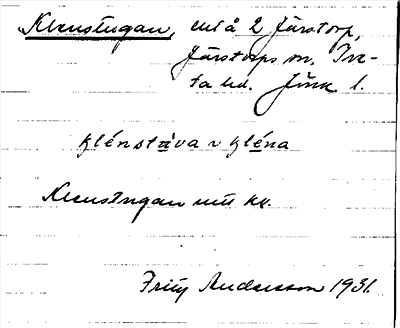 Klenstugan, enl å 2 Järstorp,
Järstorps sn. Tve-
ta hd. Jönk l.
klénståva v kléna
Klenstugan utt kv.
Fritz Andersson 1931.